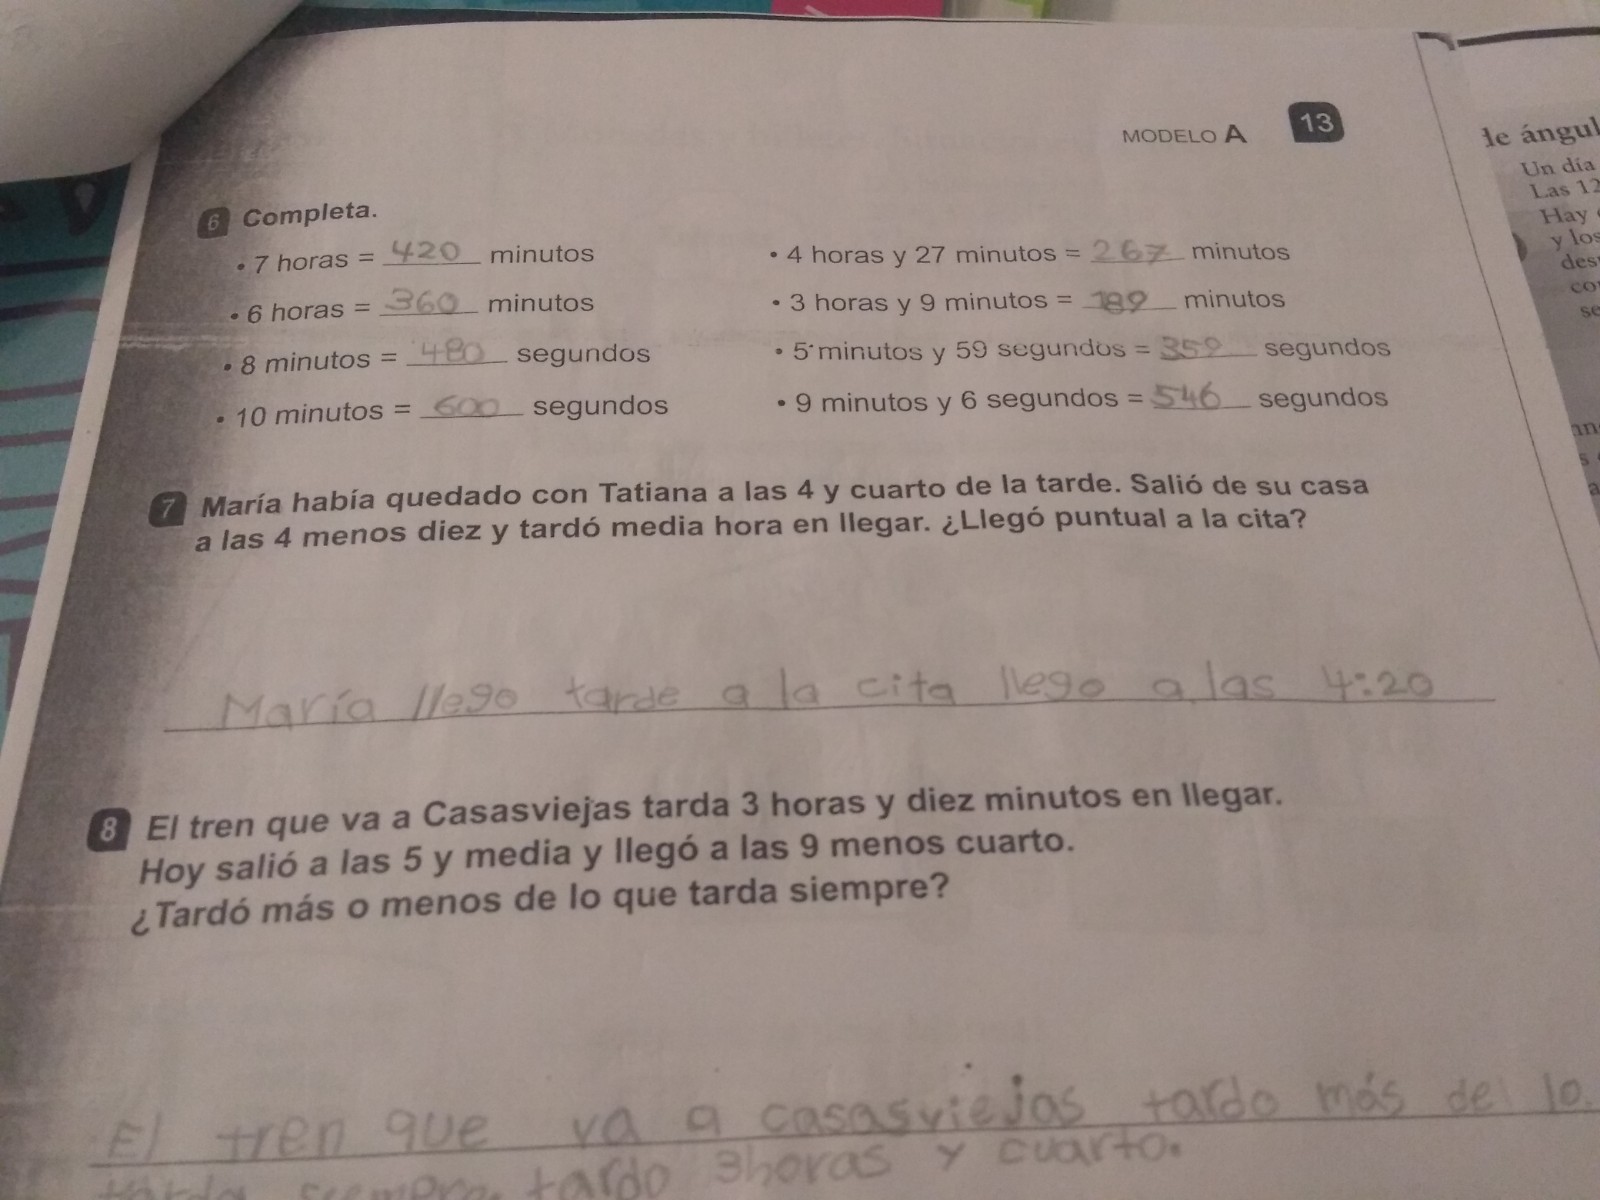 MODELO A 13
6 Completa.
• 7 horas = 420 minutos
• 6 horas = 360 minutos
• 8 minutos = 480 segundos
• 10 minutos = 600 segundos
• 4 horas y 27 minutos = 267 minutos
• 3 horas y 9 minutos = 189 minutos
• 5 minutos y 59 segundos = 359 segundos
• 9 minutos y 6 segundos = 546 segundos
7 María había quedado con Tatiana a las 4 y cuarto de la tarde. Salió de su casa
a las 4 menos diez y tardó media hora en llegar. ¿Llegó puntual a la cita?
María llego tarde a la cita llego a las 4:20
8 El tren que va a Casasviejas tarda 3 horas y diez minutos en llegar.
Hoy salió a las 5 y media y llegó a las 9 menos cuarto.
¿Tardó más o menos de lo que tarda siempre?
El tren que va a casasviejas tardo más de lo
tardo 3horas y cuarto.
de ángul
Un día
Las 12
Hay
y los